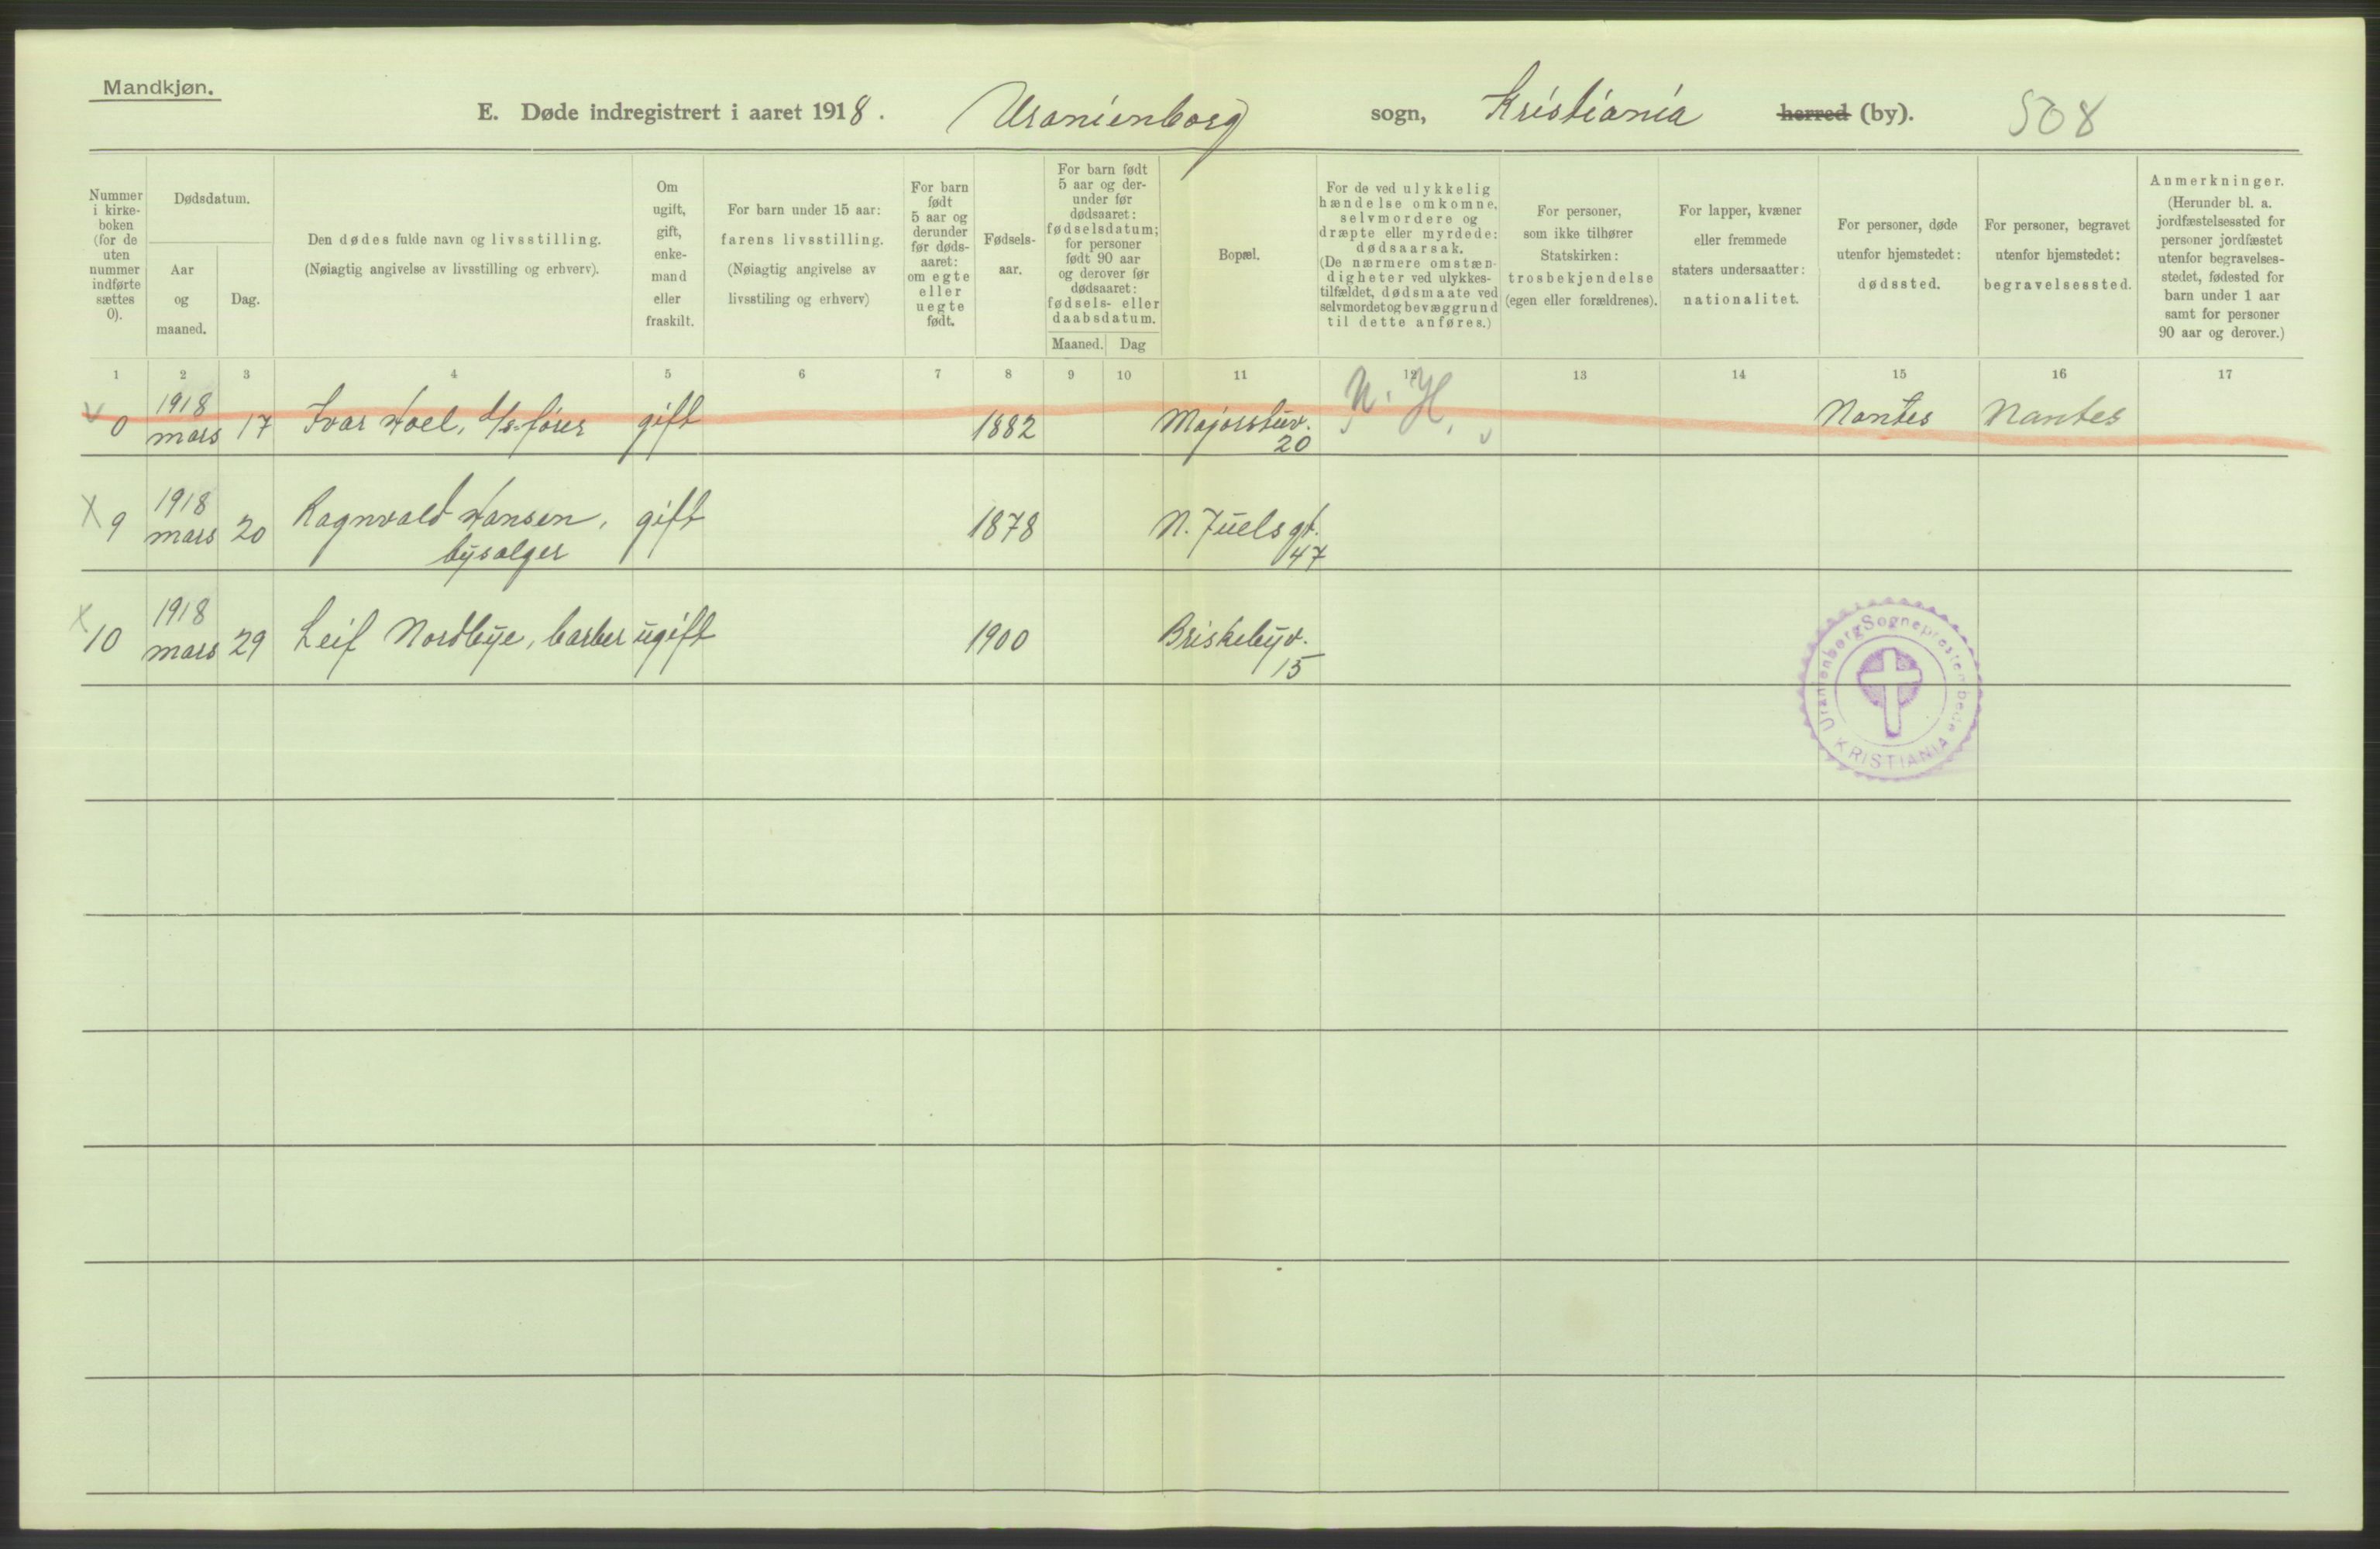 Mandkjøn.
E. Døde indregistrert i aaret 1918. Uranienborg sogn, Kristiania herred (by). 508
Nummer
i kirke-
boken
(for de
uten
nummer
indførte
sættes
0).
Dødsdatum.
Aar
og
maaned.
Dag.
Den dødes fulde navn og livsstilling.
(Nøiagtig angivelse av livsstilling og erhverv).
Om
ugift,
gift,
enke-
mand
eller
fraskilt.
For barn under 15 aar:
farens livsstilling.
(Nøiagtig angivelse av
livsstiling og erhverv)
For barn
født
5 aar og
derunder
før døds-
aaret:
om egte
eller
uegte
født.
Fødsels-
aar.
For barn født
5 aar og der-
under før
dødsaaret:
fødselsdatum;
for personer
født 90 aar
og derover før
dødsaaret:
fødsels- eller
daabsdatum.
Maaned. Dag
Bopæl.
For de ved ulykkelig
hændelse omkomne,
selvmordere og
dræpte eller myrdede:
dødsaarsak.
(De nærmere omstæn-
digheter ved ulykkes-
tilfældet, dødsmaate ved
selvmordet og bevæggrund
til dette anføres.)
For personer,
som ikke tilhører
Statskirken:
trosbekjendelse
(egen eller forældrenes).
For lapper, kvæner
eller fremmede
staters undersaatter:
nationalitet.
For personer, døde
utenfor hjemstedet:
dødssted.
For personer, begravet
utenfor hjemstedet:
begravelsessted.
Anmerkninger.
(Herunder bl. a.
jordfæstelsessted for
personer jordfæstet
utenfor begravelses-
stedet, fødested for
barn under 1 aar
samt for personer
90 aar og derover.)
1 2 3 4 5 6 7 8 9 10 11 12 13 14 15 16 17
1918
0 mars 17 Ivar Hoel, d/s. fører gift 1882 Majorstuv. N. H. Nantes Nantes
20
1918
x 9 mars 20 Ragnvald Hansen, gift 1878 N. Juels gt.
bysælger 47
1918
x 10 mars 29 Leif Nordbye, barber ugift 1900 Briskebyv.
15
Uranienborg Sogneprestembede
KRISTIANIA